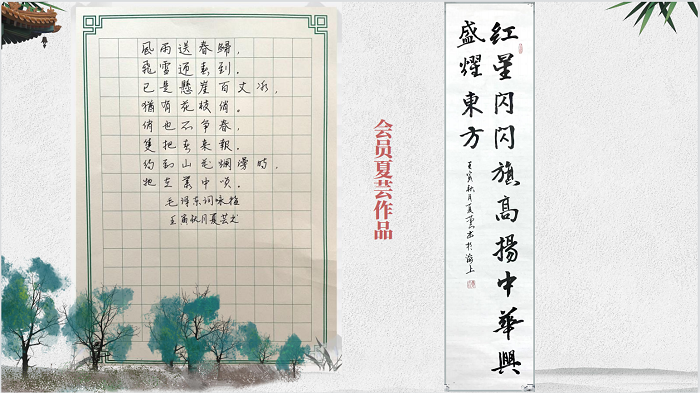 風雨送春歸，
飛雪迎春到。
已是懸崖百丈冰，
猶有花枝俏。
俏也不争春，
隻把春來報。
待到山花爛漫時，
她在叢中笑。
毛泽东词咏梅
壬寅秋月夏芸书
会员夏芸作品
红星闪闪旗高揚中華興
盛耀東方
壬寅秋月夏芸书於海上